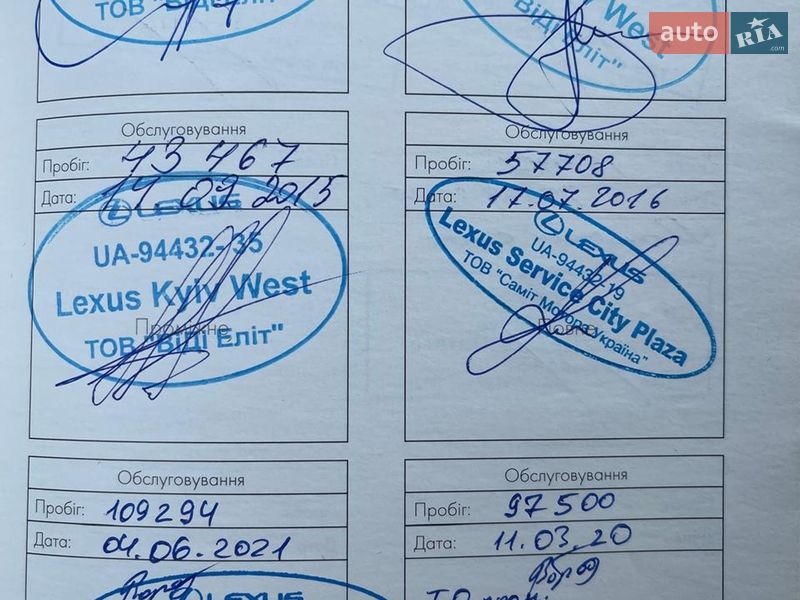 ТОВ "ВіДі Еліт"
West
ВіДі Еліт"
auto RIA .com
Обслуговування
Пробіг: 43 467
Дата: 2015
LEXUS
UA-94432-35
Lexus Kyiv West
ТОВ "ВіДі Еліт"
Обслуговування
Пробіг: 57708
Дата: 17.07.2016
LEXUS
UA-94432-19
Lexus Service City Plaza
ТОВ "Саміт Моторз Україна"
Обслуговування
Пробіг: 109294
Дата: 04.06.2021
LEXUS
Обслуговування
Пробіг: 97500
Дата: 11.03.20